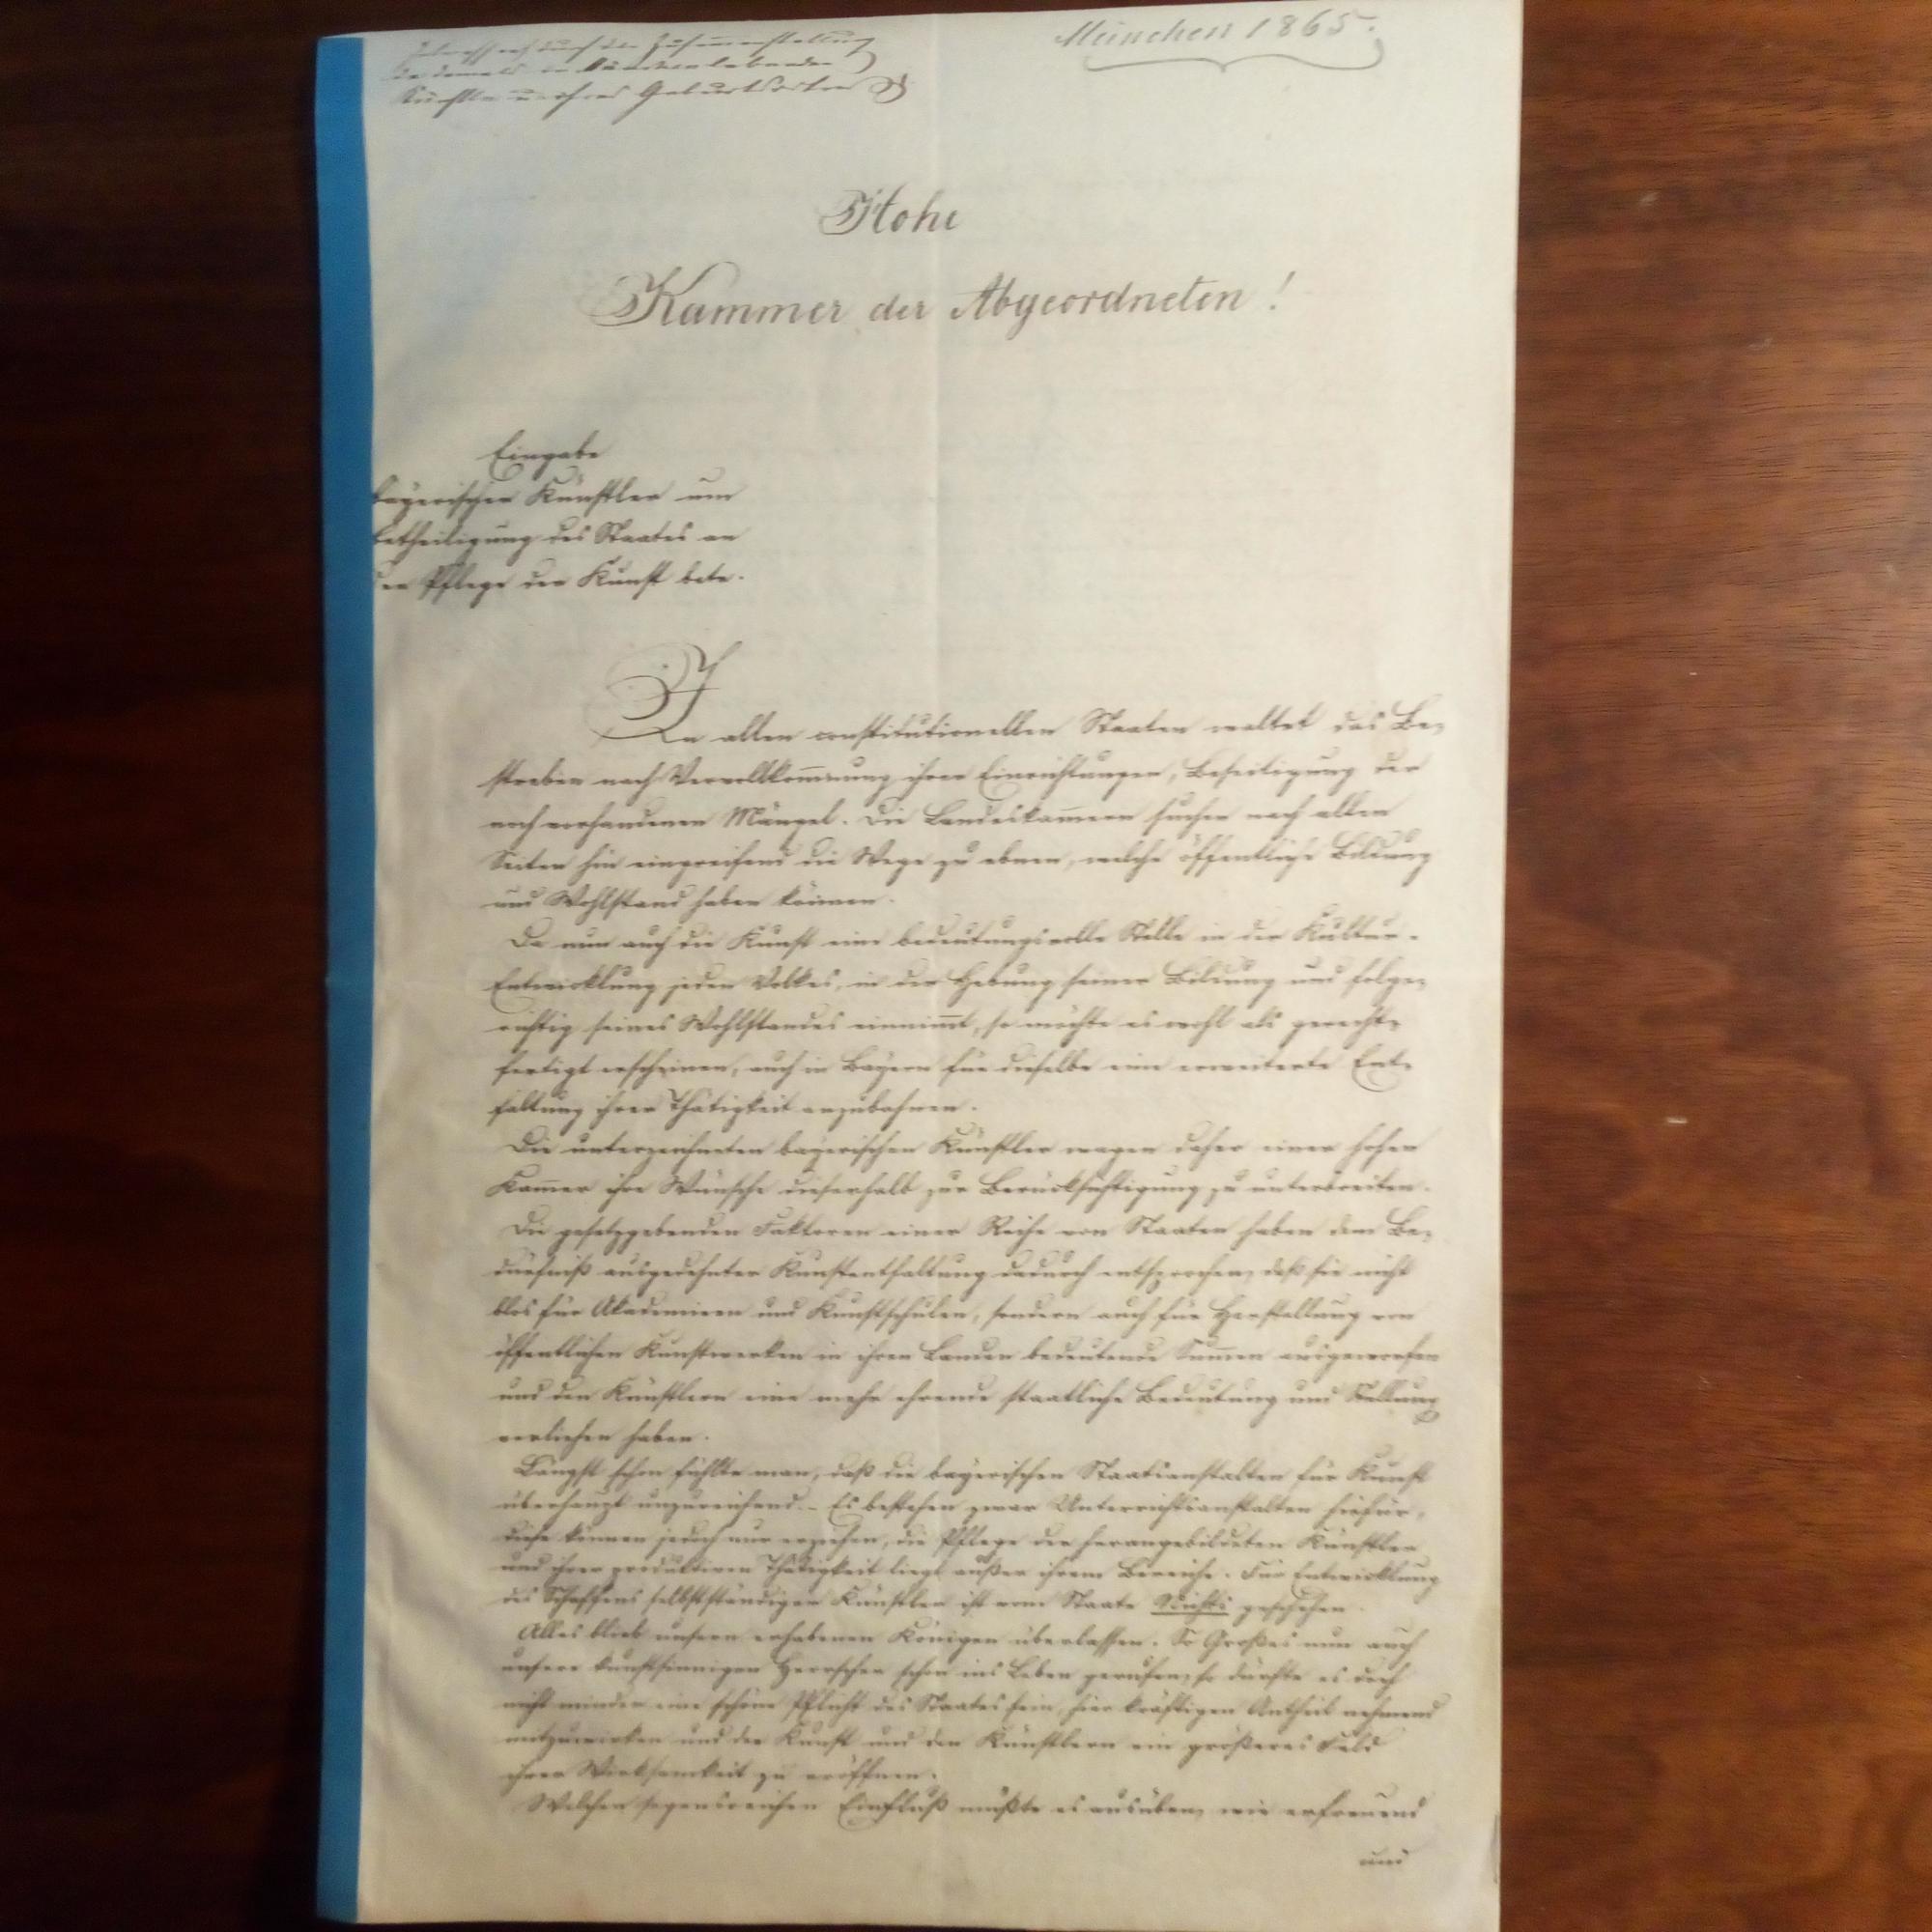 Interessant durch die Zusammenstellung
der damals in München lebenden
Künstler und ihres Geburtsortes
München 1865.
Hohe
Kammer der Abgeordneten!
Eingabe
bayerischer Künstler um
Betheiligung des Staates an
der Pflege der Kunst betr.
In allen constitutionellen Staaten waltet das Be-
streben nach Vervollkom̄nung ihrer Einrichtungen, Beseitigung der
noch vorhandenen Mängel. Die Landeskam̄ern suchen nach allen
Seiten hin eingreifend die Wege zu ebnen, welche öffentliche Bildung
und Wohlstand haben können.
Da nun auch die Kunst eine bedeutungsvolle Stelle in der Kultur-
Entwicklung jeden Volkes, in der Hebung seiner Bildung und folge-
richtig seines Wohlstandes einnim̄t, so möchte es wohl als gerecht-
fertigt erscheinen, auch in Bayern für dieselbe eine erweiterte Ent-
faltung ihrer Thätigkeit anzubahnen.
Die unterzeichneten bayerischen Künstler wagen daher einer hohen
Kam̄er ihre Wünsche dieserhalb zur Berücksichtigung zu unterbreiten.
Die gesetzgebenden Faktoren einer Reihe von Staaten haben dem Be-
dürfniß ausgedehnter Kunstentfaltung dadurch entsprochen, daß sie nicht
blos für Akademieen und Kunstschulen, sondern auch für Herstellung von
öffentlichen Kunstwerken in ihren Landen bedeutende Sum̄en ausgeworfen
und den Künstlern eine mehr ehrende staatliche Bedeutung und Stellung
verliehen haben.
Längst schon fühlte man, daß die bayerischen Staatsanstalten für Kunst
überhaupt unzureichend. – Es bestehen zwar Unterrichtsanstalten hiefür,
diese können jedoch nur erziehen, die Pflege der herangebildeten Künstler
und ihrer produktiven Thätigkeit liegt außer ihrem Bereiche. Für Entwicklung
des Schaffens selbstständiger Künstler ist vom Staate Nichts geschehen.
Alles blieb unsern erhabenen Königen überlassen. So Großes nun auch
unsere kunstsinnigen Herrscher schon ins Leben gerufen, so dürfte es doch
nicht minder eine schöne Pflicht des Staates sein, hier kräftigen Antheil nehmend
mitzuwirken und der Kunst und den Künstlern ein größeres Feld
ihrer Wirksamkeit zu eröffnen.
Welchen segensreichen Einfluß müßte es ausüben, wie erfreuend
und